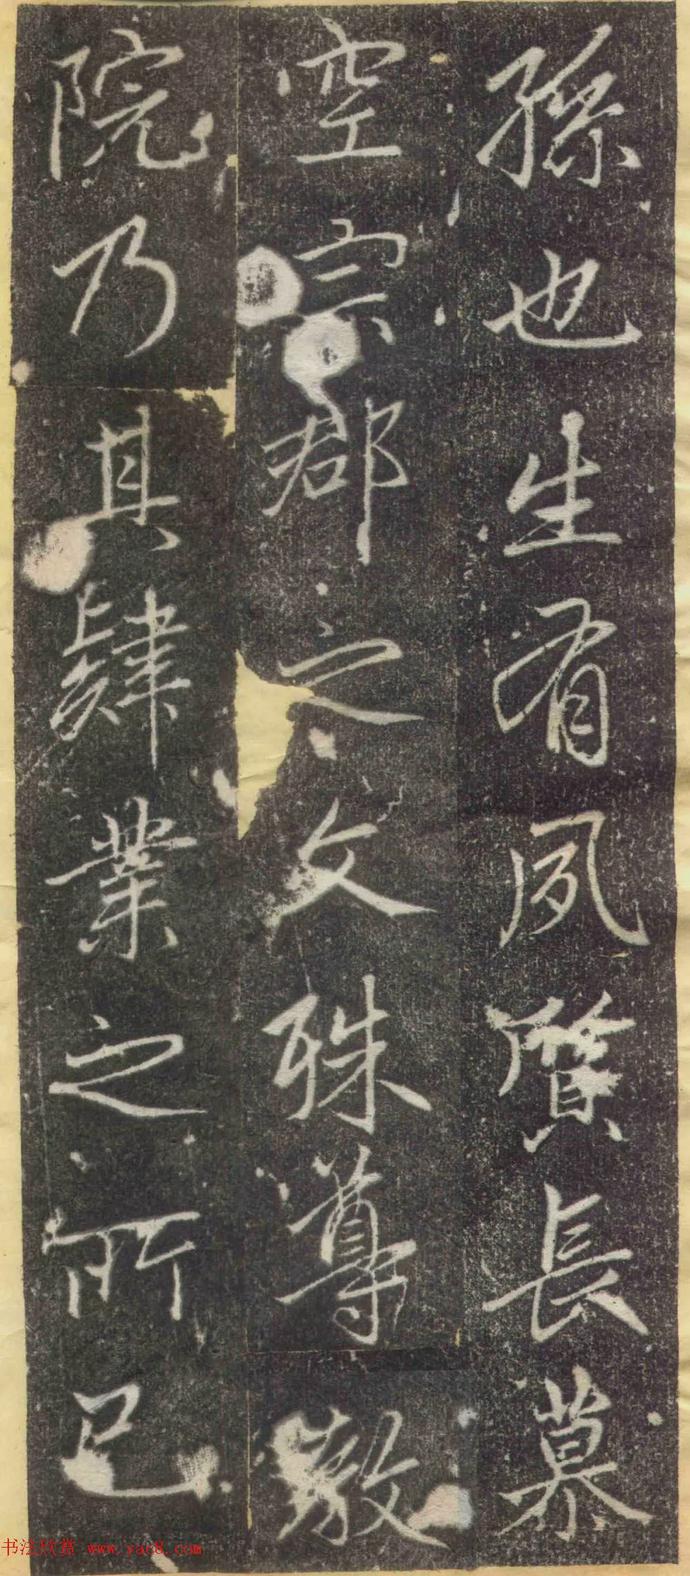 孫也生有夙質長慕
空宗郡之文殊尊敎
院乃其肄業之所已
书法欣赏 www.yac8.com